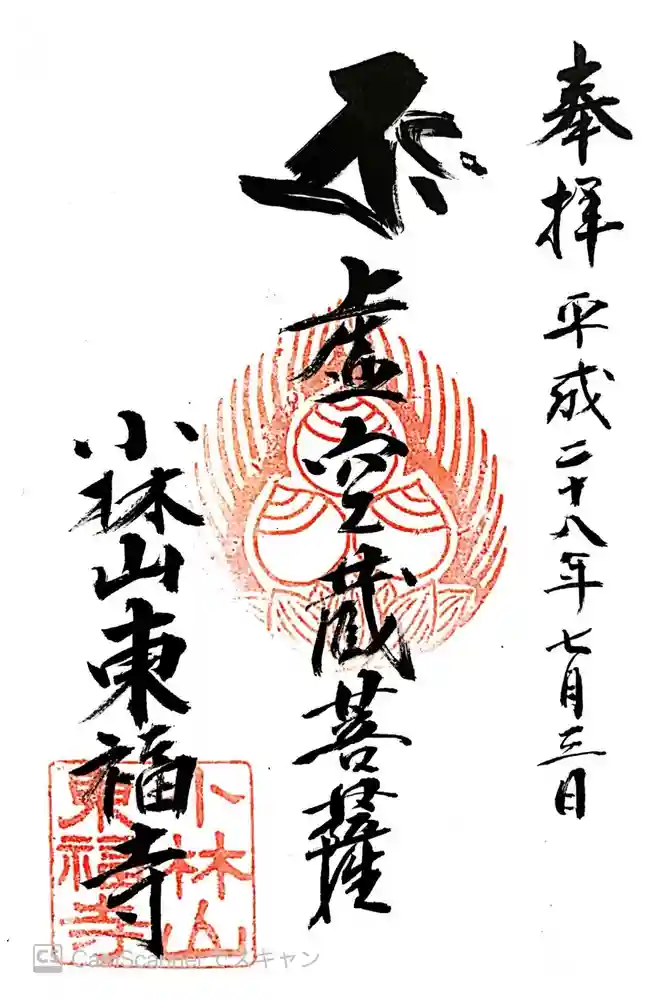 奉拝 平成二十八年七月三日
虚空蔵菩薩
小林山東福寺
小林山
東福寺
CS CamScanner でスキャン